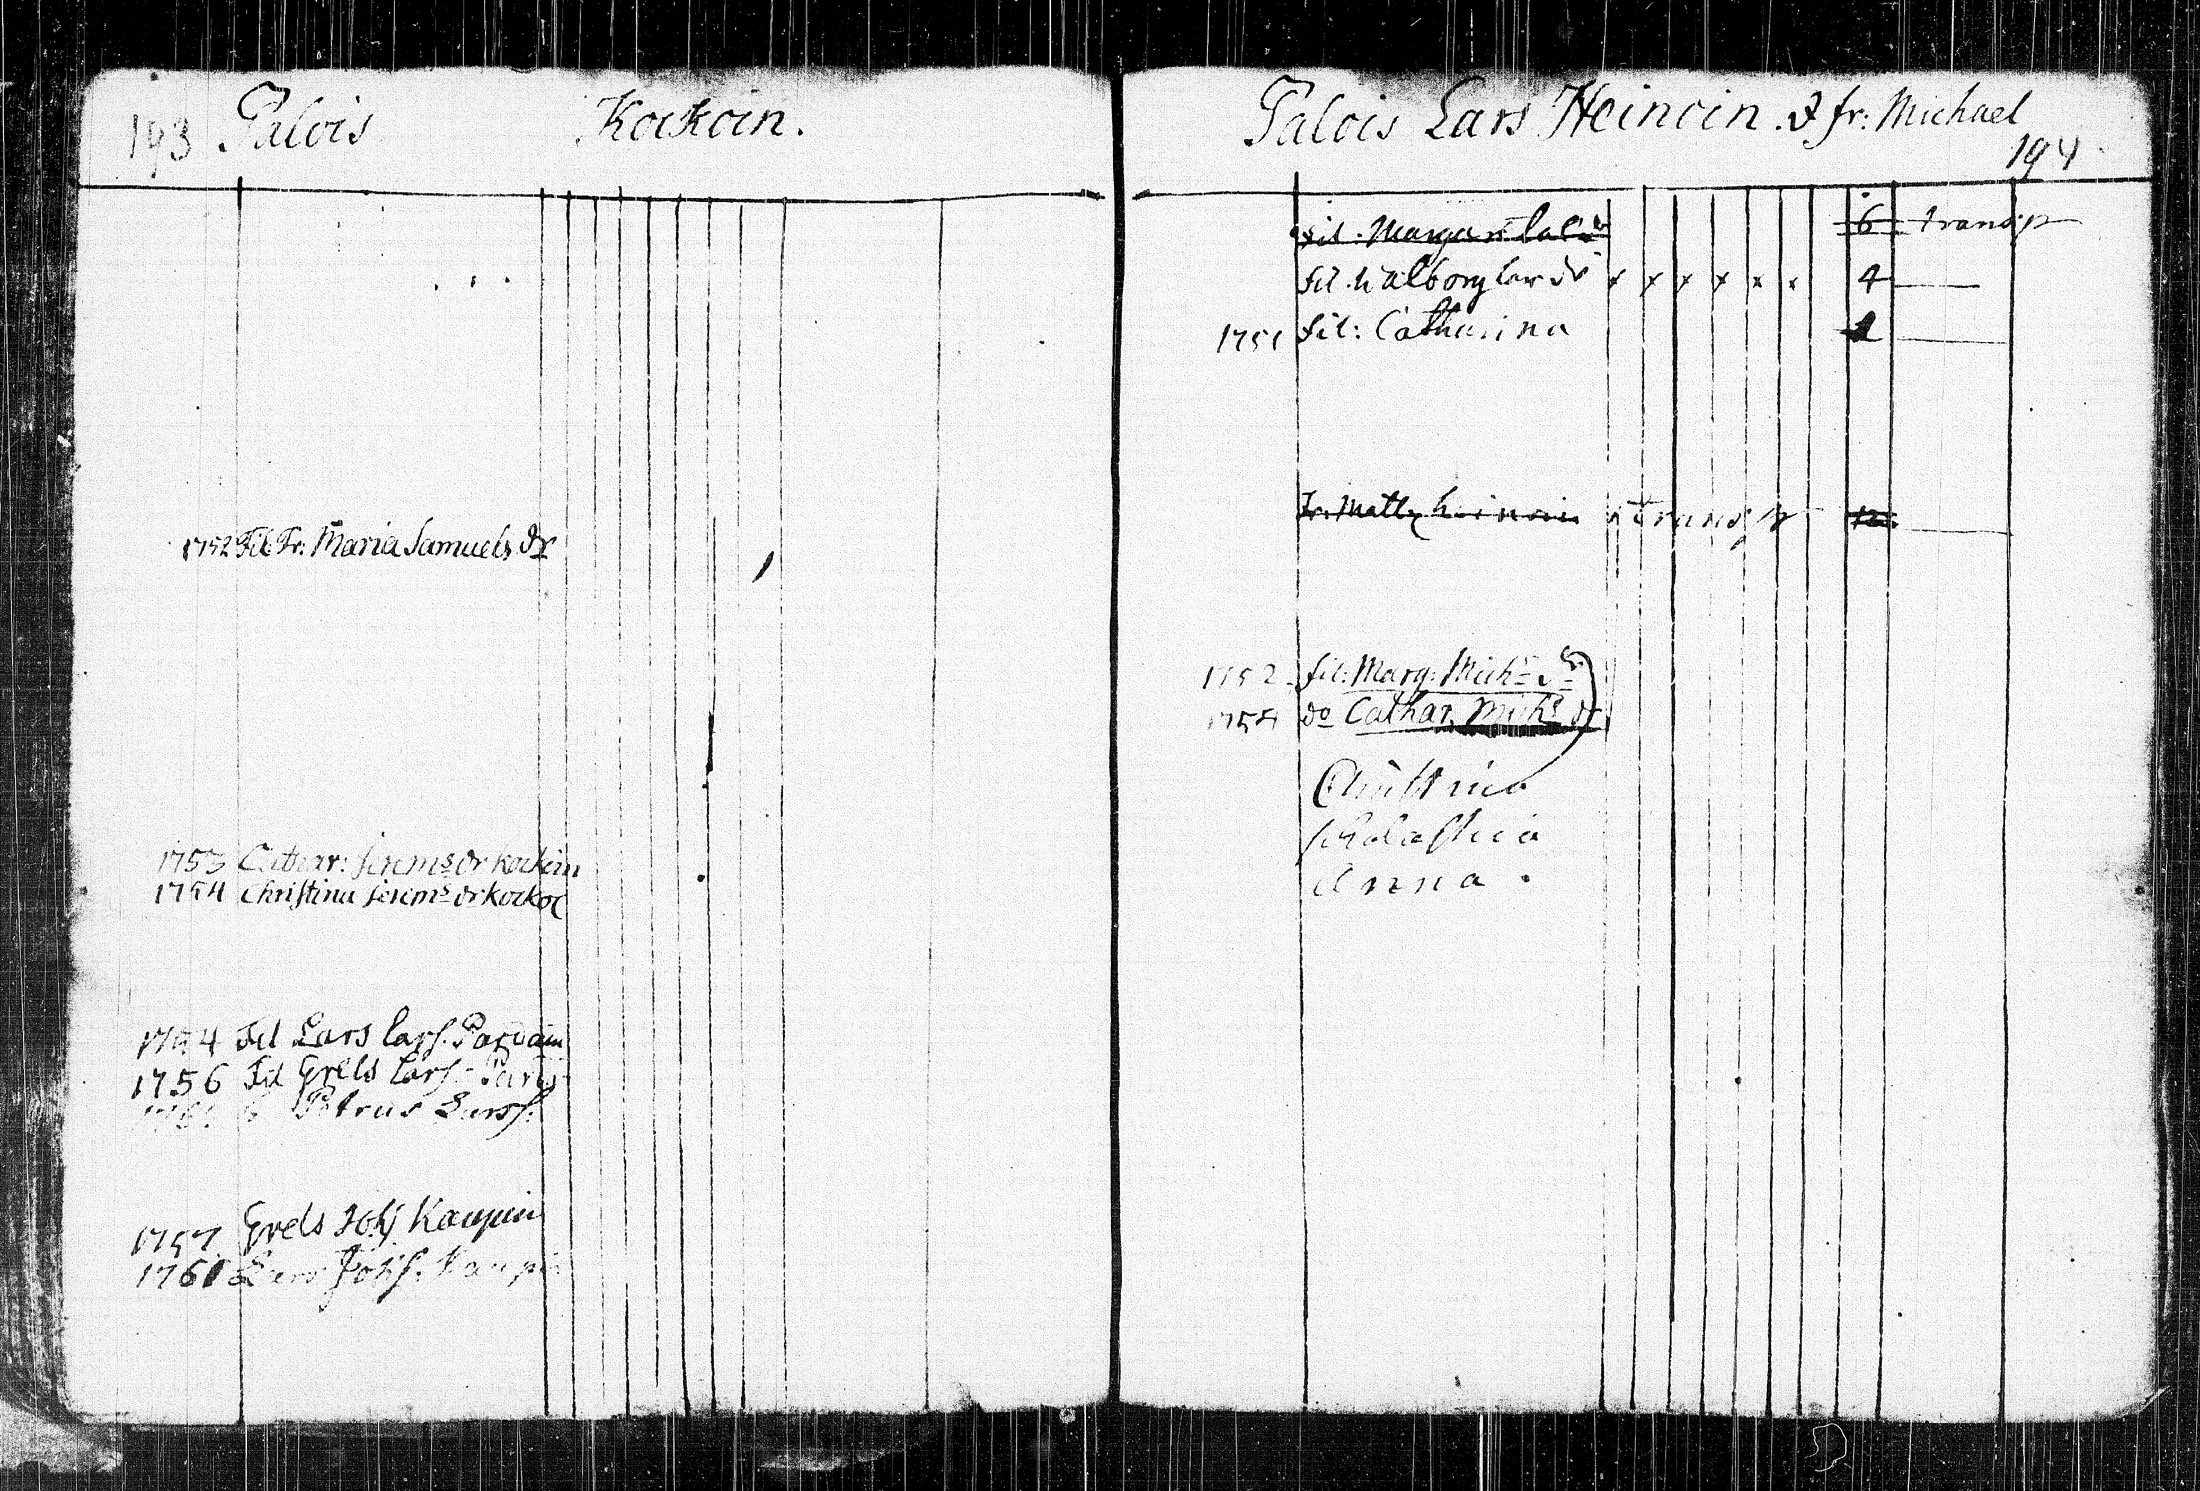 193 Palois Kockoin.
1752 Fil: Fr: Maria Samuels dr
1753 Cathar: Jerems dr Kockoin
1754 Christina Jerems dr Kockoi
1754 Fil Lars Larss. Parviain
1756 Fil Grels Larss. Parvi
Petrus Larss.
1757 Grels Johs Kaupin
1761 Lars Johss. Kaupi
Palois Lars Heinoin. & fr: Michael
194
Fil. Margar Lars dr 6 transp
Fil. Walborg Lars dr x x x x x x 4
1751 Fil: Catharina 1
Fr. Matts Heinoin transp 12
1752 Fil: Marg: Michs dr
1754 do Cathar. Michs dr
Christina
Scholastica
Anna.